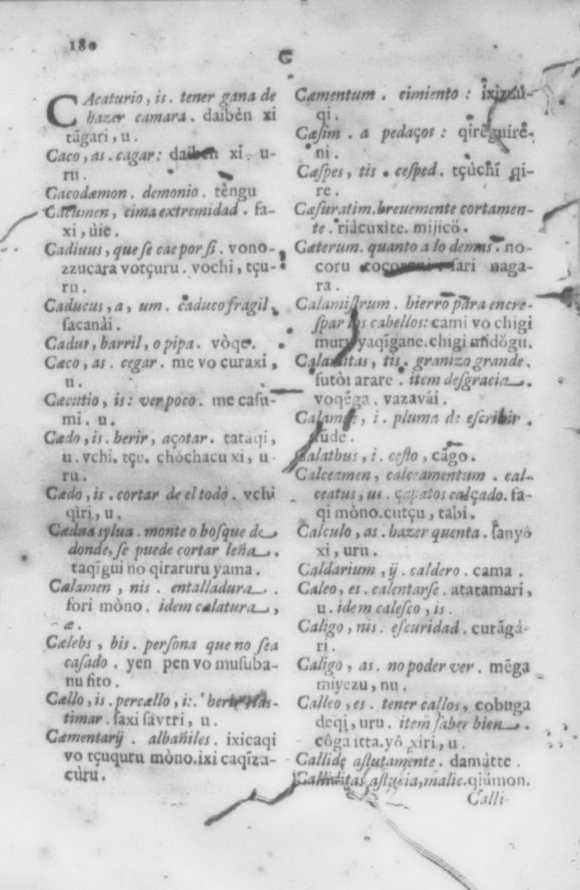 180
C
CAcaturio, is. tener gana de
hazer camara. daibén xi
tãgari, u.
Caco, as. cagar: daiben xi, u-
ru.
Cacodæmon. demonio. tẽngu
Cacumen, cima extremidad. fa-
xi, ùie.
Cadiuus, que ſe cae por ſi. vono-
zzucara votçuru. vochi, tçu-
ru.
Caducus, a, um. caduco fragil,
ſacanài.
Cadur, barril, o pipa. vòqe.
Cæco, as. cegar. me vo curaxi,
u.
Cæcutio, is: ver poco. me caſu-
mi. u.
Cædo, is. herir, açotar. tatàqi,
u. vchi. tçu. chòchacu xi, u
ru.
Cædo, is. cortar de el todo. vchi
qìri, u.
Cædua sylua. monte o boſque de
donde, ſe puede cortar leña.
taqigui no qiraruru yama.
Cælamen, nis. entalladura.
fori mòno. idem cælatura,
æ.
Cælebs, bis. perſona que no ſea
caſado. yen pen vo muſuba-
nu fito.
Cællo, is. percællo, i:. herir laſ-
timar. ſaxi ſàvtri, u.
Cæmentarij. albañiles. ixicaqi
vo tçuquru mòno. ixi caqĩza-
cùru.
Cæmentum. cimiento: ixizzu-
qi.
Cæſim. a pedaços: qireguirẽ-
ni.
Cæſpes, tis. ceſped. tçùchi qi-
re.
Cæſuratim. breuemente cortamen-
te. riàcuxite. mijicò.
Cæterum. quanto a lo demas. no-
coru ſari naga-
ra.
Calamiſtrum. hierro para encre-
ſpar los cabellos: cami vo chigi
muru yaqigane. chigi mĩdògu.
Calamitas, tis. granizo grande.
futòi arare. item deſgracia.
voqẽga. vazavài.
Calamus, i. pluma de eſcribir.
fude.
Calathus, i. ceſto, càgo.
Calceamen, calceamentum. cal-
ceatus, us. çapatos calçado. fa-
qi mòno. cutçu, tabi.
Calculo, as. hazer quenta. ſanyò
xi, uru.
Caldarium, ij. caldero. cama.
Caleo, es. calentarſe. atatamari,
u. idem caleſco, is.
Caligo, nis. eſcuridad. curãgá-
ri.
Caligo, as. no poder ver. mẽga
miyezu, nu.
Calleo, es. tener callos, cobuga
deqi, uru. item ſaber bien.
côga itta. yô xiri, u.
Callide aſtutamente. damàtte.
Calliditas aſtucia, malic. qiúmon.
Calli